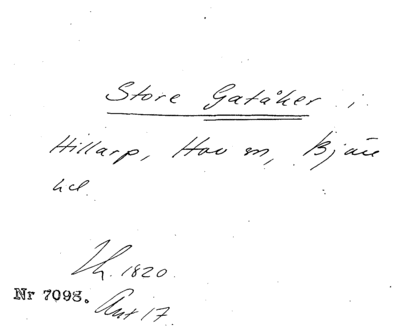 Store Gatåker i
Hillarp, Hov sn, Bjäre
hd.
Lh. 1820.
Nr 7098.
Akt 17